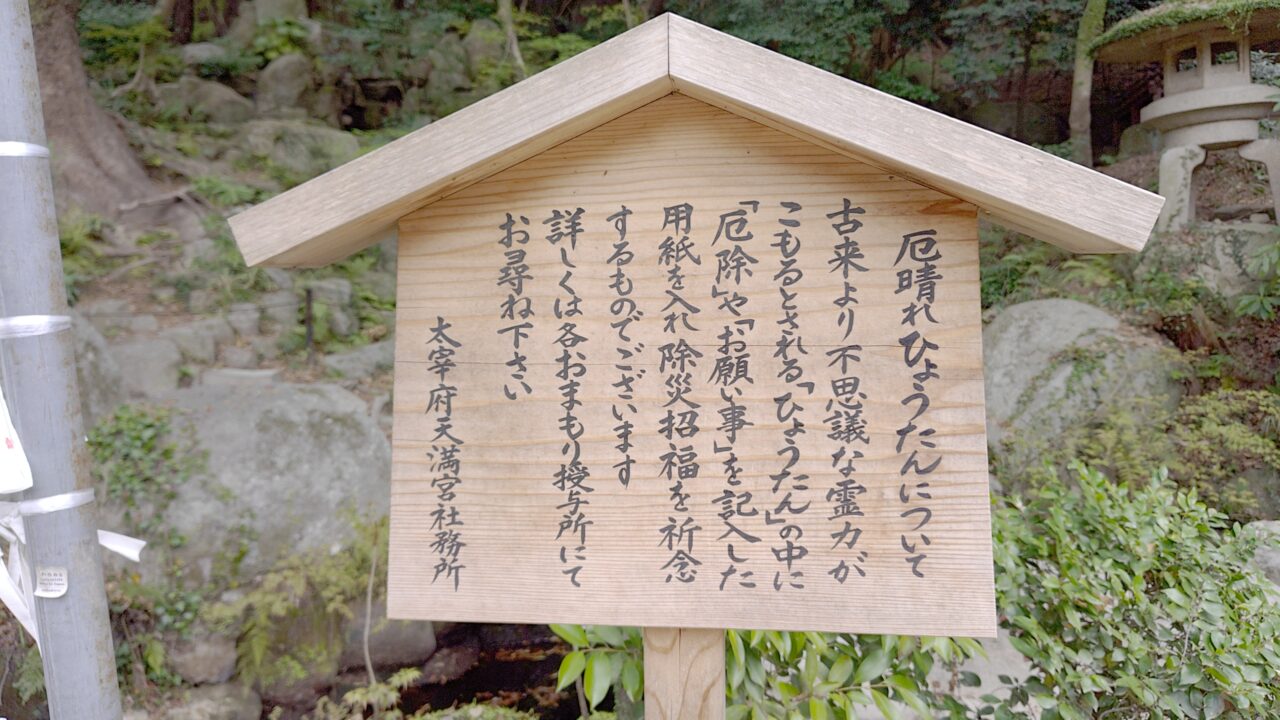 厄晴れひょうたんについて
古来より不思議な霊力が
こもるとされる「ひょうたん」の中に
「厄除」や「お願い事」を記入した
用紙を入れ除災招福を祈念
するものでございます
詳しくは各おまもり授与所にて
お尋ね下さい
太宰府天満宮社務所